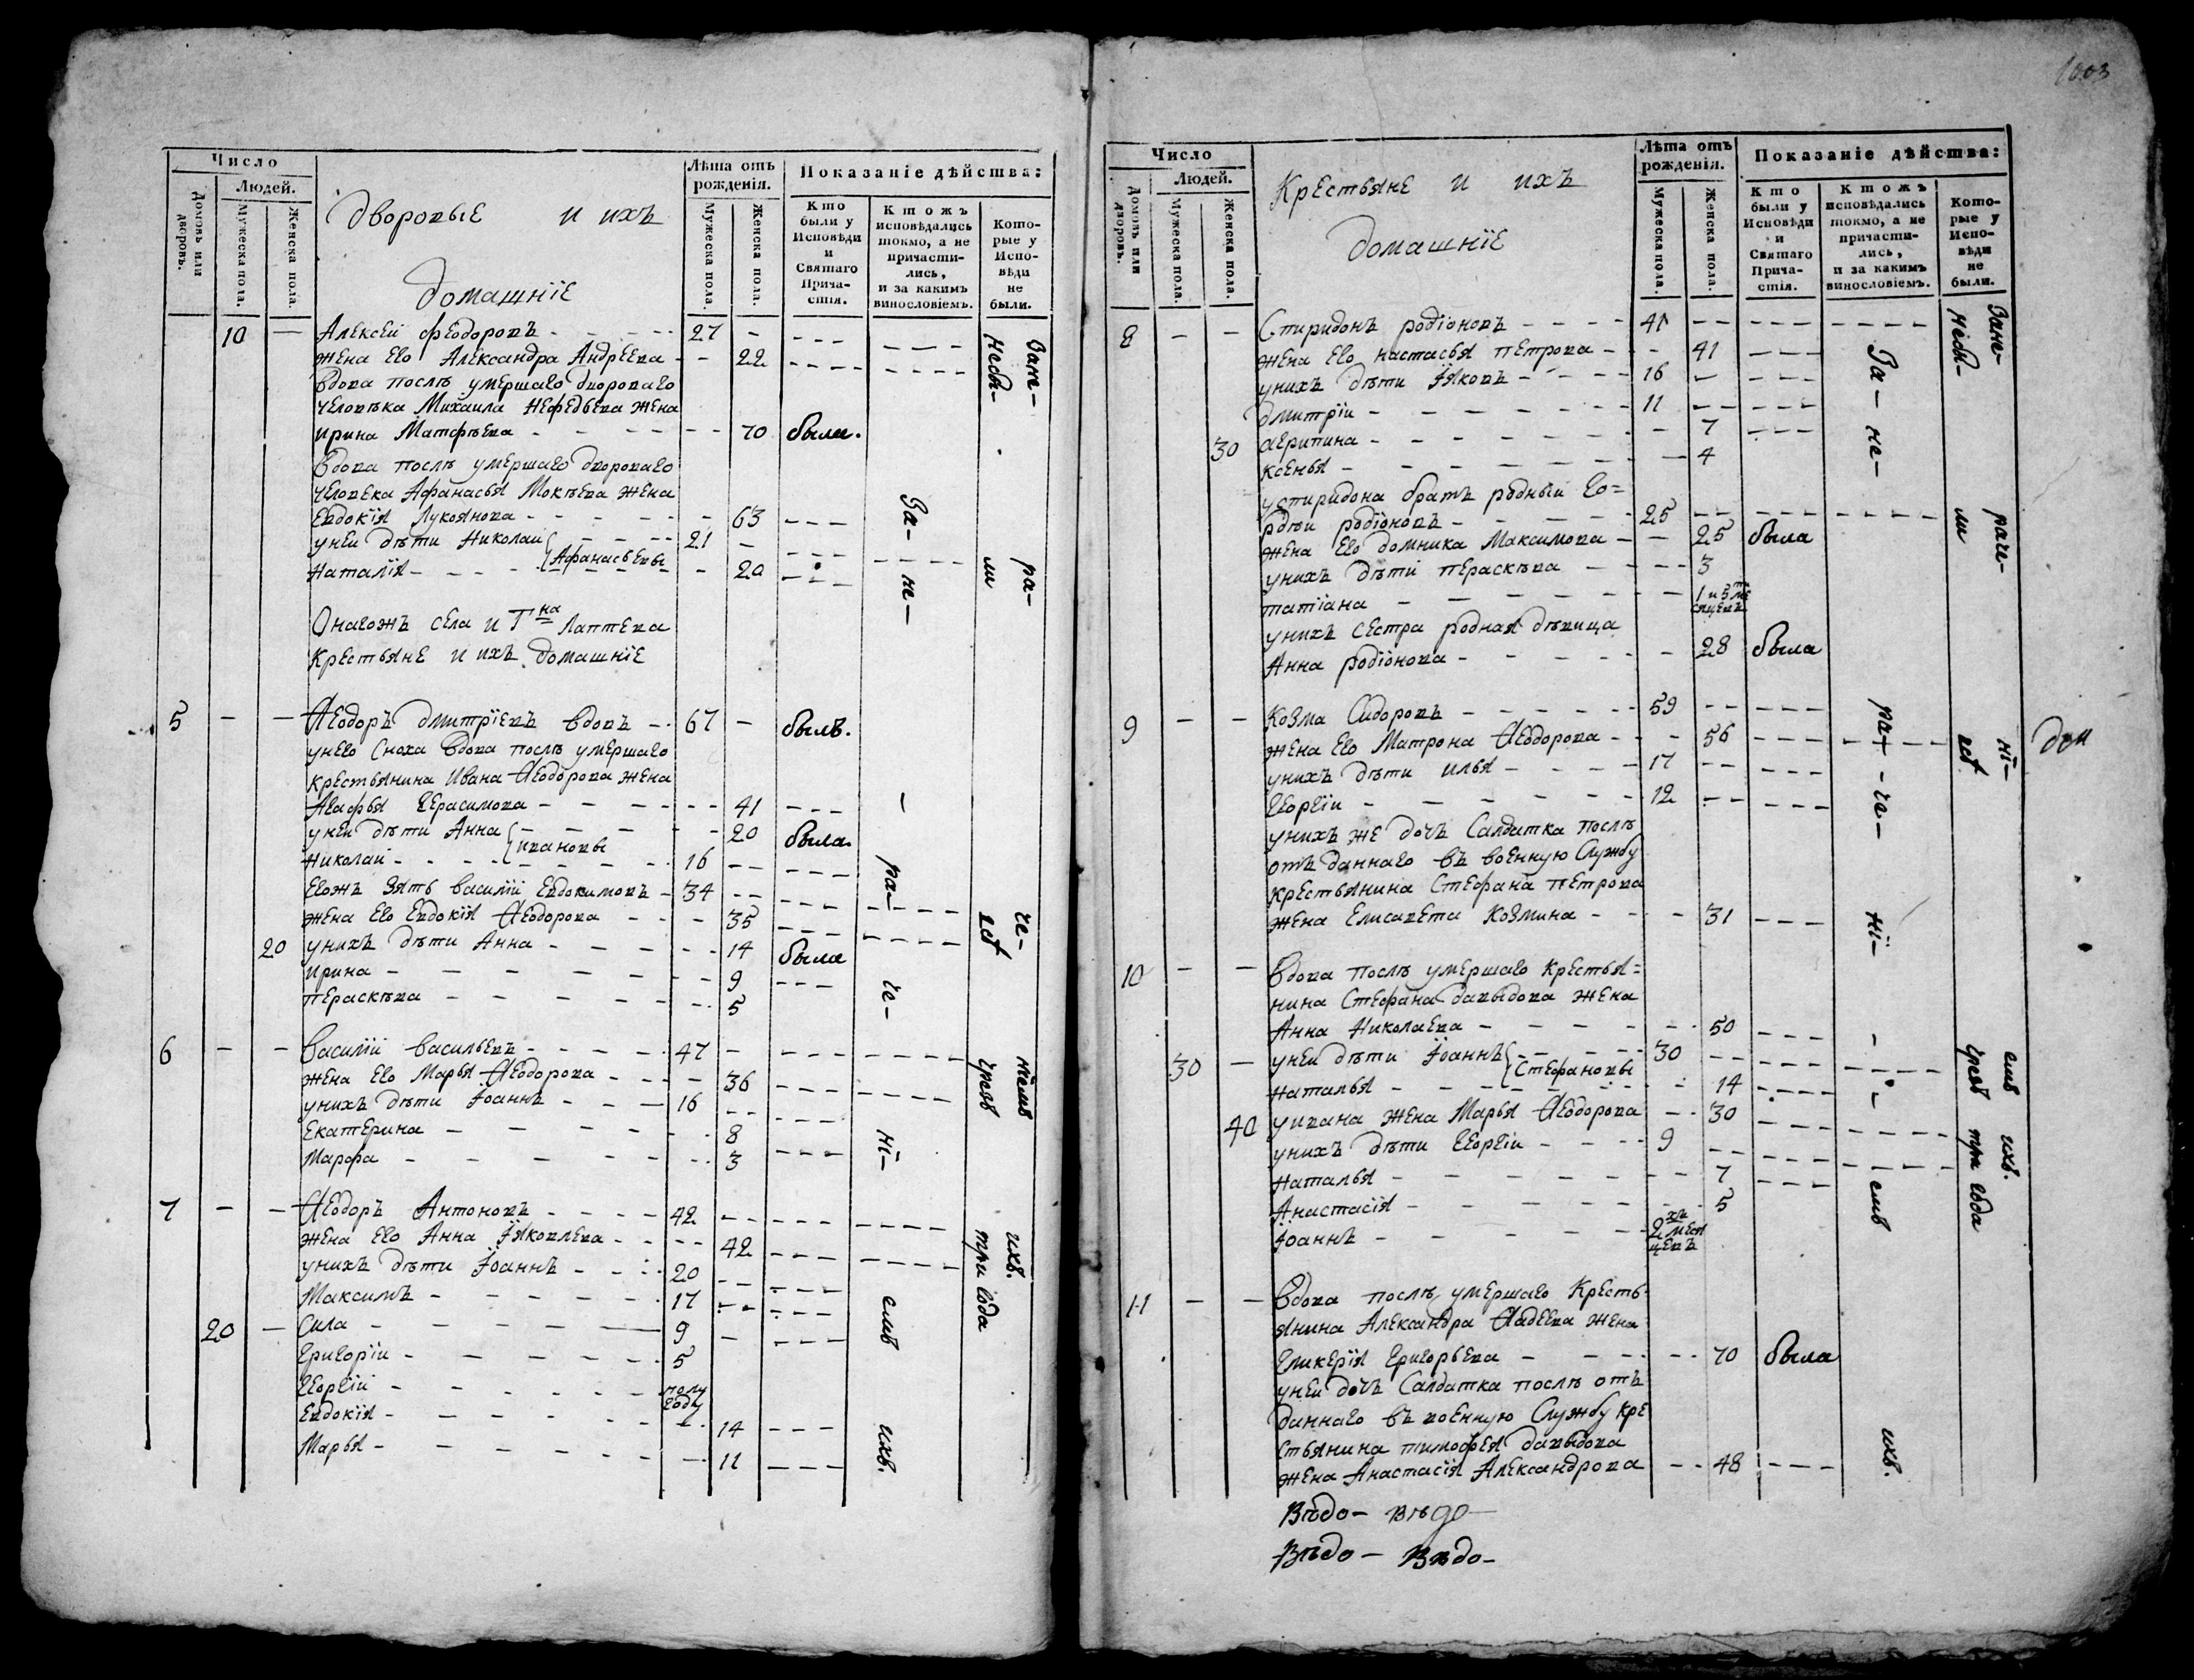 Число
Людей.
Домовъ или дворовъ.
Мужеска пола.
Женска пола.
Дворовые и ихъ
домашнїе
Лѣта отъ рожденія.
Мужеска пола.
Женска пола.
Показаніе дѣйства:
Кто были у Исповѣди и Святаго Прича- стія.
Ктожъ исповѣдались токмо, а не причасти- лись, и за какимъ винословіемъ.
Кото- рые у Испо- вѣди не были.
10 — Алексей Феодоровъ - - - - 27 -
жена его Александра Андреева - - 22
Вдова послѣ умершаго дворового
человѣка Михаила Нефедьева жена
Ирина Матфѣева - - - - - - 70 была.
Вдова послѣ умершаго дворового
человека Афанасья Мокѣева жена
Евдокїя Лукоянова - - - - - - 63
унеи дѣти Николаи - - - - 21 -
{Афанасьевы
Наталїя - - - - - 20
Оногожъ села и Гна Лаптева
крестьяне и ихъ домашнїе
5 - - Ѳеодоръ Дмитрїевъ вдовъ - 67 - былъ.
унего сноха вдова послѣ умершаго
крестьянина Ивана Ѳеодорова жена
Агафья Герасимова - - - - - - 41
унеи дѣти Анна - - - - 20 была.
{Ивановы
Николаи - - - - - 16 --
Егожъ зять Василїи Евдокимовъ - 34 --
жена его Евдокїя Ѳеодорова - - - 35
20 унихъ дѣти Анна - - - - - 14 была
Ирина - - - - - - 9
Пераскѣва - - - - - - 5
6 - - Василїи Васильевъ - - - - 47 -
жена его Марья Ѳеодорова - - - 36
унихъ дѣти Їоаннъ - - - 16 --
Екатерина - - - - - 8
Марфа - - - - - - 3
7 - - Ѳеодоръ Антоновъ - - - - 42 --
жена его Анна Їяковлева - - - - 42
унихъ дѣти Їоаннъ - - - 20 --
Максимъ - - - - - 17 --
20 — Сила - - - - - 9 -
Григорїи - - - - - 5
Георгїи - - - - - полу году
Евдокїя - - - - - - 14
Марья - - - - - - 11
За- не- ра- че- нї- емъ ихъ.
Зане- ра- че- нїемъ ихъ.
небы- ли ей чрезъ три года
1003
Число
Людей.
Домовъ или дворовъ.
Мужеска пола.
Женска пола.
Крестьяне и ихъ
домашнїе
Лѣта отъ рожденія.
Мужеска пола.
Женска пола.
Показаніе дѣйства:
Кто были у Исповѣди и Святаго Прича- стія.
Ктожъ исповѣдались токмо, а не причасти- лись, и за какимъ винословіемъ.
Кото- рые у Испо- вѣди не были.
8 - - Спиридонъ Родїоновъ - - - - 41 --
жена его Настасья Петрова - - 41
унихъ дѣти Їяковъ - - - - 16 -
Дмитрїи - - - - - - 11 --
30 Агрипина - - - - - - 7
Ксенья - - - - - - 4
успиридона братъ родныи Го=
рдѣи Родїоновъ - - - - - 25 --
жена его Домника Максимова - - 25 была
унихъ дѣти Пераскѣва - - - 3
Татїана - - - - - - 1 и 5ти месяцевъ
унихъ сестра родная дѣвица
Анна Родїонова - - - - - 28 была
9 - - Козма Сидоровъ - - - - - 59 --
жена его Матрона Ѳеодорова - - - 56
унихъ дѣти Илья - - - - 17 --
Георгїи - - - - - 12 --
унихъ же дочъ салдатка послѣ
отъ даннаго въ военную службу
крестьянина Стефана Петрова
жена Елисавета Козмина - - - 31
10 - - Вдова послѣ умершаго крестья=
нина Стефана Давыдова жена
Анна Николаева - - - - - - 50
30 - унеи дѣти Їоаннъ - - - - 30 --
{Стефановы
Наталья - - - - - - 14
40 уивана жена Марья Ѳеодорова - - 30
унихъ дѣти Георгїи - - - - 9 --
Наталья - - - - - - 7
Анастасїя - - - - - - 5
Їоаннъ - - - - - 2хъ меся цевъ
11 - - Вдова послѣ умершаго кресть-
янина Александра Авдеева жена
Гликерїя Григорьева - - - - - 70 была
унеи дочъ салдатка послѣ отъ
даннаго въ военную службу кре
стьянина Тимофея Давыдова
жена Анастасїя Александрова - - 48
За- не- ра- че- нї- емъ ихъ.
Зане- раче- нї- емъ ихъ.
небы- ли ей чрезъ три года
Вѣдо- вѣдо-
Вѣдо- Вѣдо-